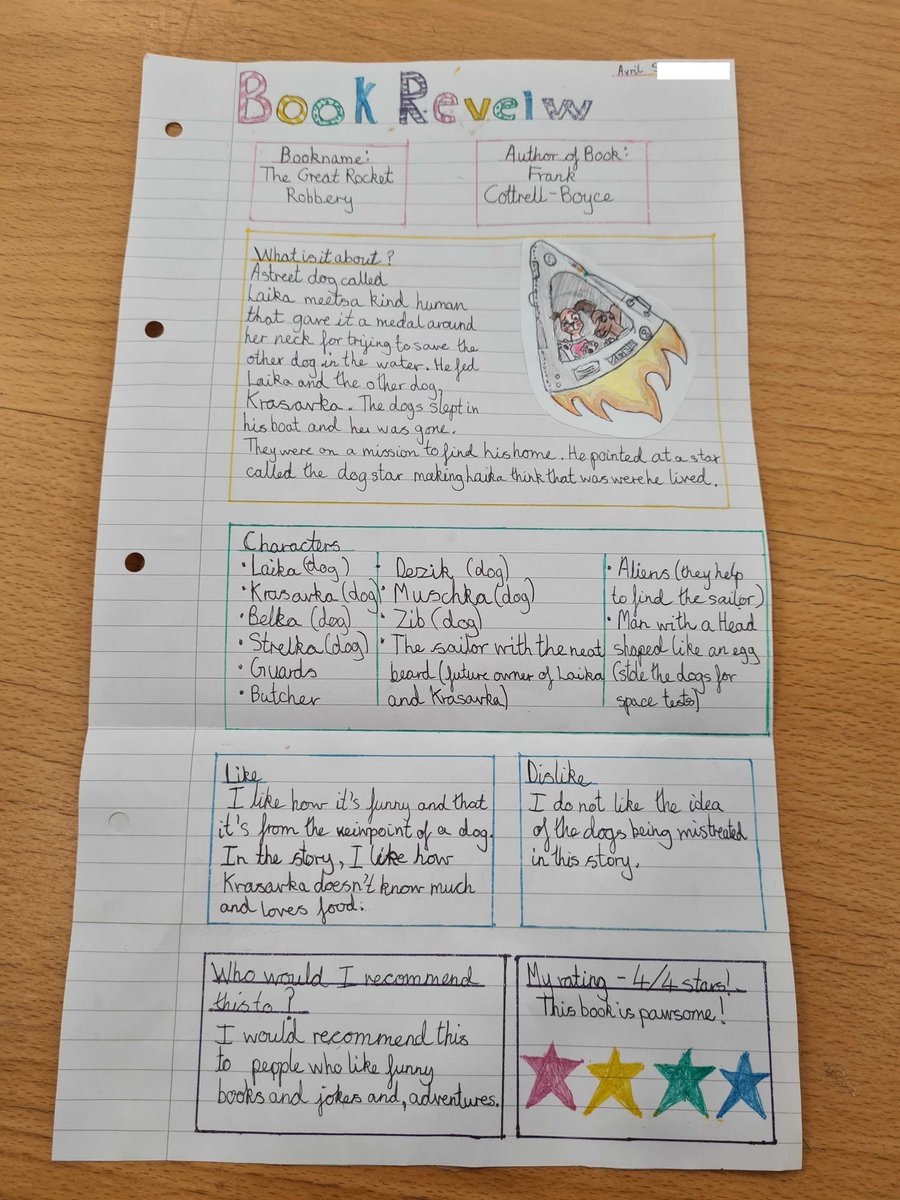 Avril S
Book Reveiw
Bookname:
The Great Rocket
Robbery
Author of Book:
Frank
Cottrell-Boyce
What is it about?
A street dog called
Laika meets a kind human
that gave it a medal around
her neck for trying to save the
other dog in the water. He fed
Laika and the other dog,
Krasavka. The dogs slept in
his boat and he was gone.
They were on a mission to find his home. He pointed at a star
called the dog star making Laika think that was were he lived.
Characters
• Laika (dog)
• Krasavka (dog)
• Belka (dog)
• Strelka (dog)
• Guards
• Butcher
• Dezik (dog)
• Muschka (dog)
• Zib (dog)
• The sailor with the neat
beard (future owner of Laika
and Krasavka)
• Aliens (they help
to find the sailor)
• Man with a Head
shaped like an egg
(stole the dogs for
space tests)
Like
I like how it's funny and that
it's from the veiwpoint of a dog.
In the story, I like how
Krasavka doesn't know much
and loves food.
Dislike
I do not like the idea
of the dogs being mistreated
in this story.
Who would I recommend
this to?
I would recommend this
to people who like funny
books and jokes and, adventures.
My rating - 4/4 stars!
This book is pawsome!